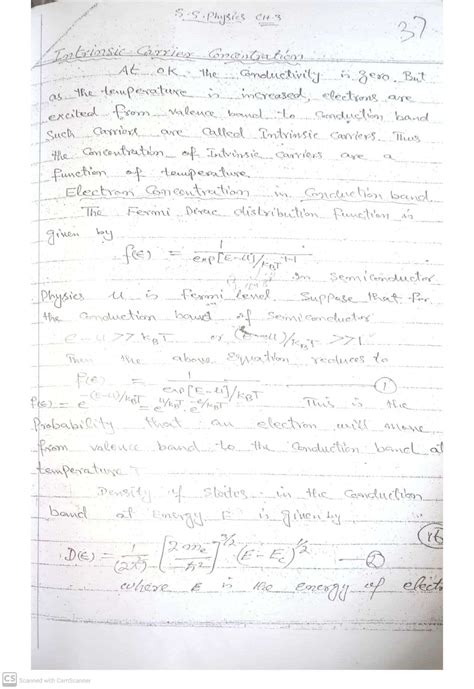 S.S. Physics CH-3
37
Intrinsic Carrier Concentration
At 0K the conductivity is zero. But
as the temperature is increased, electrons are
excited from valence band to conduction band
Such carriers are called Intrinsic carriers. Thus
the Concentration of Intrinsic carriers are a
function of temperature.
Electron Concentration in Conduction band
The Fermi Dirac distribution function is
given by
f(E) = 1/exp[E-u]/KBT +1
In semiconductor
Physics u is Fermi level. Suppose that for
the conduction band of semiconductor
E-u >> KBT or (E-u)/KBT >>1
Then the above equation reduces to
f(E) = 1/exp[E-u]/KBT ①
f(E) = e^-(E-u)/KBT = e^u/KBT . e^-E/KBT This is the
Probability that an electron will move
from valence band to the conduction band at
temperature T
Density of States in the Conduction
band at Energy E is given by
D(E) = 1/(2π²) [2me/ħ²]^3/2 (E-Ec)^1/2 — ②
where E is the energy of elect
CS Scanned with CamScanner